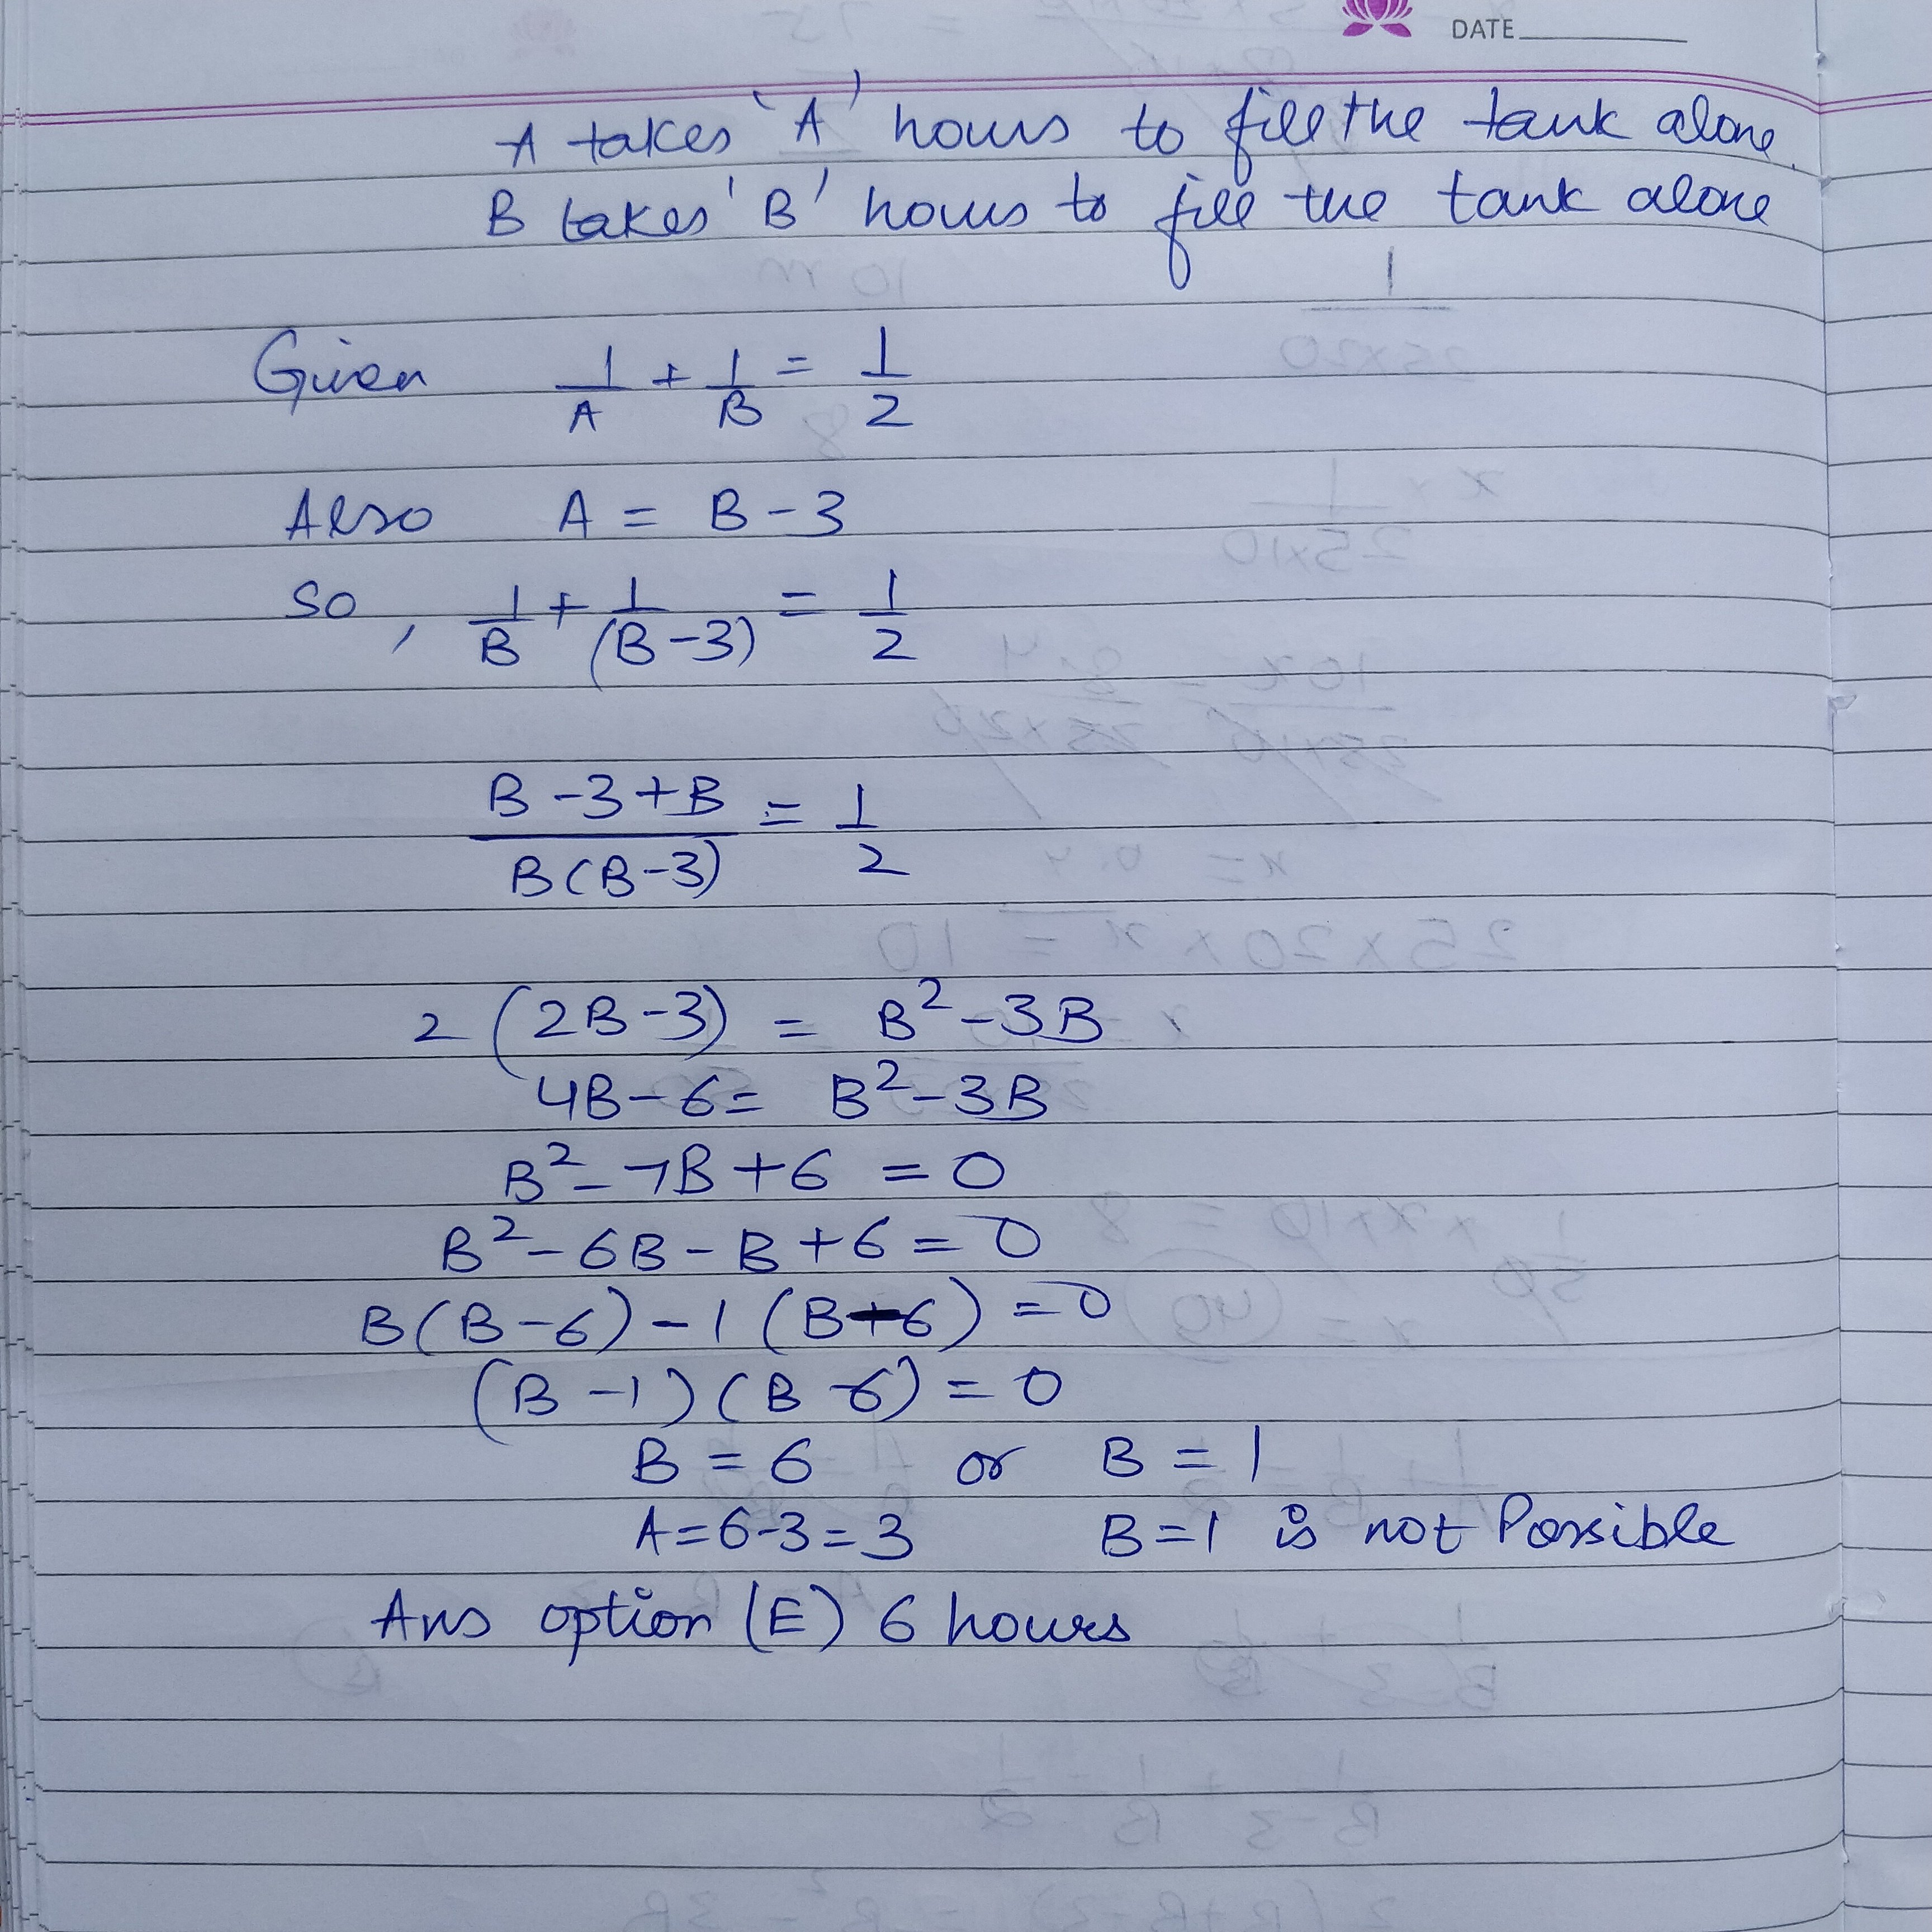 DATE
A takes 'A' hours to fill the tank alone.
B takes 'B' hours to fill the tank alone
Given 1/A + 1/B = 1/2
Also A = B - 3
so, 1/B + 1/(B-3) = 1/2
B-3+B / B(B-3) = 1/2
2(2B-3) = B²-3B
4B-6 = B²-3B
B²-7B+6 = 0
B²-6B-B+6=0
B(B-6)-1(B-6)=0
(B-1)(B-6)=0
B = 6 or B = 1
A=6-3=3 B=1 is not Possible
Ans option (E) 6 hours